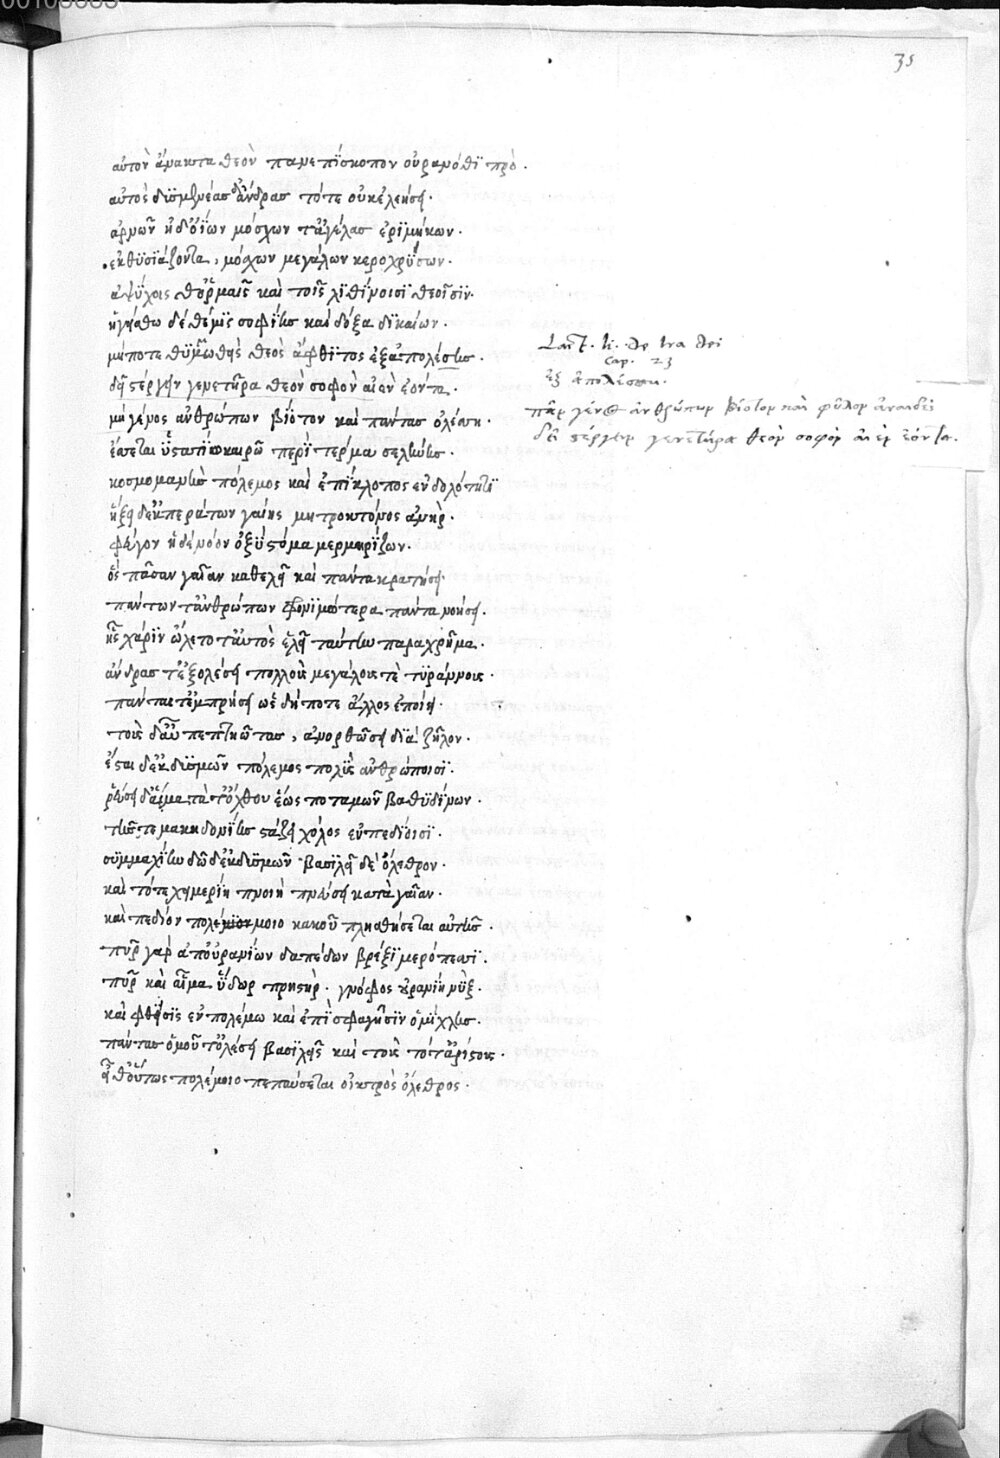 35
αὐτὸν ἄνακτα θεὸν πανεπίσκοπον οὐρανόθϊ πρό.
αὐτὸς δυσμενέας δ' ἄνδρας τότε οὐκ ἐλεήσει.
ἀρνῶν ἠδ' ὀΐων μόσχων τ' ἀγέλας ἐριμήκων.
ἐκθυσϊάζοντα, μόσχων μεγάλων κεροχρύσων.
ἀψύχοις θ' ἑρμαῖς καὶ τοῖς λϊθίνοισϊ θεοῖσϊν.
ἡγείσθω δὲ θέμϊς σοφΐης καὶ δόξα δϊκαίων.
μήποτε θυμωθεὶς θεὸς ἄφθϊτος ἐξαπολέσης.
δεῖ στέργειν γενετῆρα θεὸν σοφὸν αἰὲν ἐόντα.
μὴ γένος ἀνθρώπων βίοτον καὶ πάντας ὀλέσση.
ἔσσεται ὑστατίω καιρῶ περὶ τέρμα σελήνης.
κοσμομανὴς πόλεμος καὶ ἐπίκλοπος ἐν δολότητϊ
ἥξει δ' ἐκ περάτων γαίης μητροκτόνος ἀνὴρ.
φεύγων ἠδὲ νόον ὀξύστομα μερμηρίζων.
ὃς πᾶσαν γαῖαν καθελεῖ καὶ πάντα κρατήσει.
πάντων τ' ἀνθρώπων φρονϊμώτερα πάντα νοήσει.
ἧς χάρϊν ὤλετο τ' αὐτὸς ἑλεῖ ταύτην παραχρῆμα.
ἄνδρας τ' ἐξολέσει πολλοὺς μεγάλους τὲ τϋράννους.
πάντας τ' ἐμπρήσει ὡς οὐδήποτε ἄλλος ἐποίει.
τοὺς δ' αὖ πεπτηῶτας, ἀνορθώσει διὰ ζῆλον.
ἔσται δ' ἐκ δυσμῶν πόλεμος πολὺς ἀνθρώποισϊ.
ῥεύσει δ' αἷμα τὰ τ' ὄχθου ἕως ποταμῶν βαθυδίνων.
τῆς τε μακηδονΐης στάζει χόλος ἐν πεδίοισϊ.
συμμαχΐην δώσει δ' ἐκ δυσμῶν βασϊλεῖ δὲ ὄλεθρον.
καὶ τότε χειμερίη πνοιὴ πνεύσει κατὰ γαῖαν.
καὶ πεδίον πολέμοιο κακοῦ πλησθήσεται αὖτις.
πῦρ γὰρ ἀπ' οὐρανίων δαπέδων βρέξει μερόπεσσϊ.
πῦρ καὶ αἷμα ὕδωρ πρηστήρ. γνόφος οὐρανίη νὺξ.
καὶ φθίσϊς ἐν πολέμω καὶ ἐπὶ σφαγῇσϊν ὁμίχλης.
πάντας ὁμοῦ τ' ὀλέσει βασϊλεῖς καὶ τοὺς τότ' ἀρίστους.
εἶθ' οὕτως πολέμοιο πεπαύσεται οἰκτρὸς ὄλεθρος.
Lact. li. de Ira dei
cap. 23
ἐξ ἀπολέσση.
πᾶν γένος ἀνθρώπων βίοτον καὶ φῦλον ἀναιδές
δεῖ στέργειν γενετῆρα θεὸν σοφὸν αἰὲν ἐόντα.